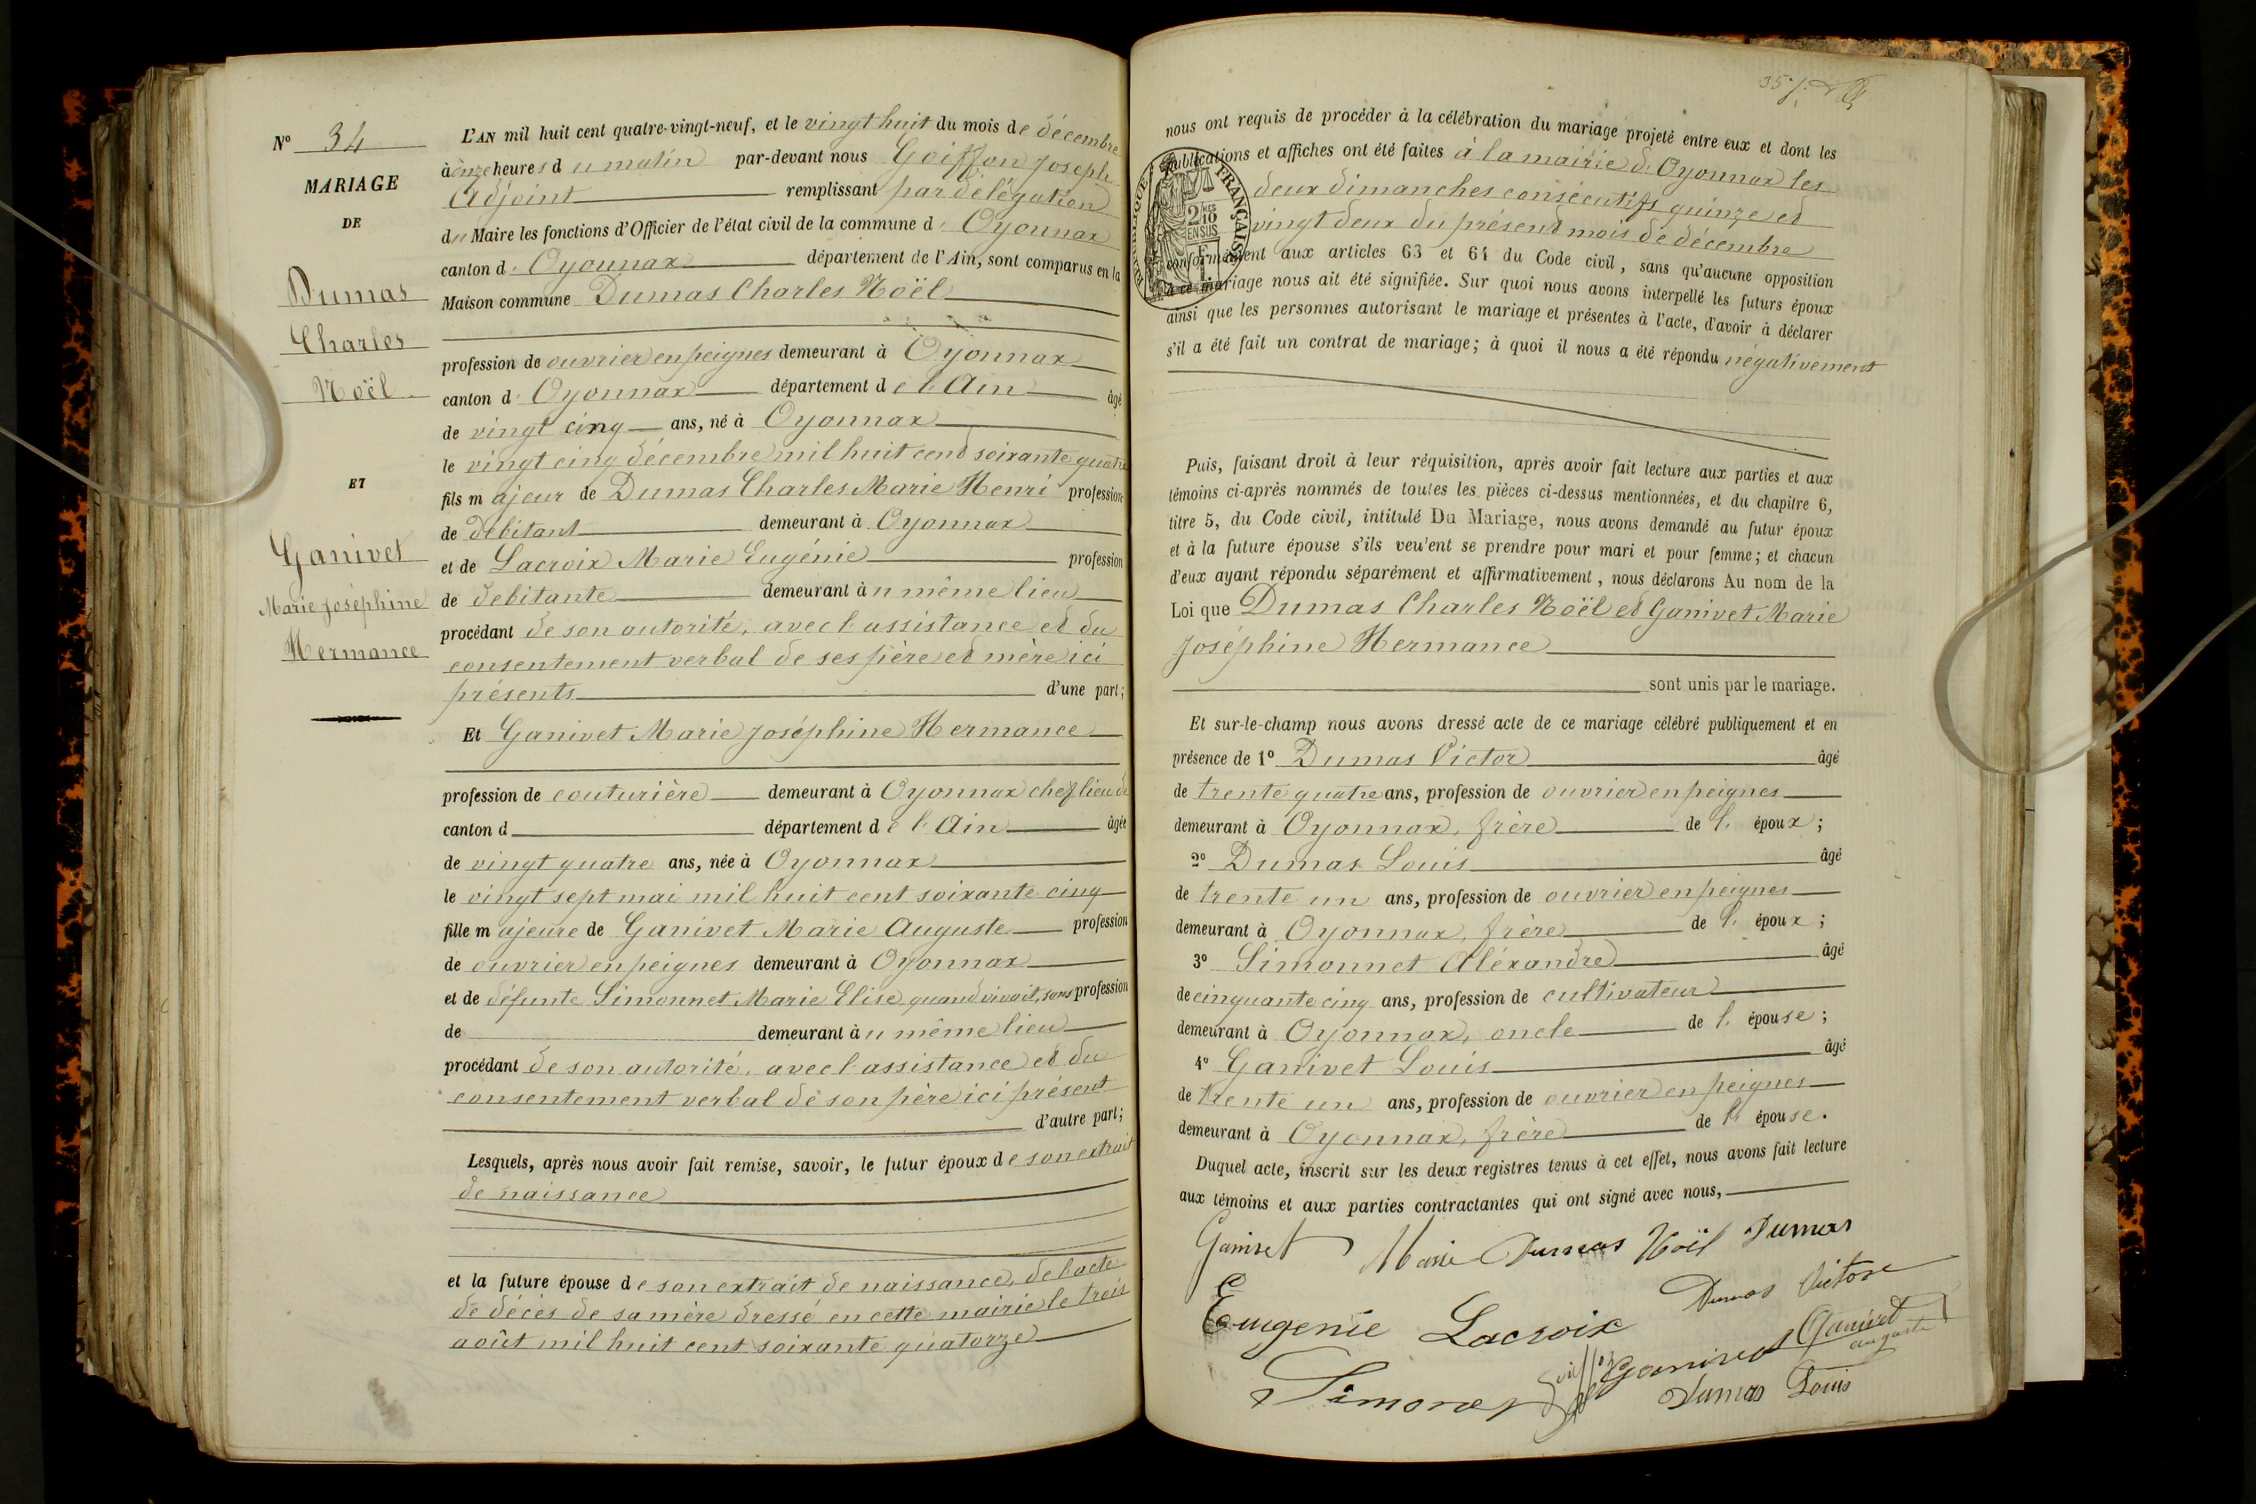 N° 34
MARIAGE
DE
Dumas
Charles
Noël
ET
Ganivet
Marie Joséphine
Hermance
L'AN mil huit cent quatre-vingt-neuf, et le vingt huit du mois de décembre
à onze heures du matin par-devant nous Goiffon Joseph
Adjoint remplissant par délégation
du Maire les fonctions d'Officier de l'état civil de la commune d'Oyonnax
canton d'Oyonnax département de l'Ain, sont comparus en la
Maison commune Dumas Charles Noël
profession de ouvrier en peignes demeurant à Oyonnax
canton d'Oyonnax département de l'Ain âgé
de vingt cinq ans, né à Oyonnax
le vingt cinq décembre mil huit cent soixante quatre
fils majeur de Dumas Charles Marie Henri profession
de débitant demeurant à Oyonnax
et de Lacroix Marie Eugénie profession
de debitante demeurant au même lieu
procédant de son autorité, avec l'assistance et du
consentement verbal de ses père et mère ici
présents d'une part;
Et Ganivet Marie Joséphine Hermance
profession de couturière demeurant à Oyonnax chef lieu de
canton d département de l'Ain âgée
de vingt quatre ans, née à Oyonnax
le vingt sept mai mil huit cent soixante cinq
fille majeure de Ganivet Marie Auguste profession
de ouvrier en peignes demeurant à Oyonnax
et de défunte Simonnet Marie Elise quand vivait, sans profession
de demeurant au même lieu
procédant de son autorité, avec l'assistance et du
consentement verbal de son père ici présent
d'autre part;
Lesquels, après nous avoir fait remise, savoir, le futur époux de son extrait
de naissance
et la future épouse de son extrait de naissance, de l'acte
de décès de sa mère dressé en cette mairie le trois
août mil huit cent soixante quatorze
35
nous ont requis de procéder à la célébration du mariage projeté entre eux et dont les
publications et affiches ont été faites à la mairie d'Oyonnax les
deux dimanches consécutifs quinze et
vingt deux du présent mois de décembre
conformément aux articles 63 et 64 du Code civil, sans qu'aucune opposition
à ce mariage nous ait été signifiée. Sur quoi nous avons interpellé les futurs époux
ainsi que les personnes autorisant le mariage et présentes à l'acte, d'avoir à déclarer
s'il a été fait un contrat de mariage; à quoi il nous a été répondu négativement
RÉPUBLIQUE FRANÇAISE
2 MES
10
EN SUS
Puis, faisant droit à leur réquisition, après avoir fait lecture aux parties et aux
témoins ci-après nommés de toutes les pièces ci-dessus mentionnées, et du chapitre 6,
titre 5, du Code civil, intitulé Du Mariage, nous avons demandé au futur époux
et à la future épouse s'ils veulent se prendre pour mari et pour femme; et chacun
d'eux ayant répondu séparément et affirmativement, nous déclarons Au nom de la
Loi que Dumas Charles Noël et Ganivet Marie
Joséphine Hermance
sont unis par le mariage.
Et sur-le-champ nous avons dressé acte de ce mariage célébré publiquement et en
présence de 1° Dumas Victor âgé
de trente quatre ans, profession de ouvrier en peignes
demeurant à Oyonnax, frère de l'époux;
2° Dumas Louis âgé
de trente un ans, profession de ouvrier en peignes
demeurant à Oyonnax, frère de l'époux;
3° Simonnet Aléxandre âgé
de cinquante cinq ans, profession de cultivateur
demeurant à Oyonnax, oncle de l'épouse;
4° Ganivet Louis âgé
de trente un ans, profession de ouvrier en peignes
demeurant à Oyonnax, frère de l'épouse.
Duquel acte, inscrit sur les deux registres tenus à cet effet, nous avons fait lecture
aux témoins et aux parties contractantes qui ont signé avec nous,
Ganivet Marie Dumas Noël Dumas
Dumas Victore
Eugenie Lacroix Ganivet
auguste
Goiffon Ganivet
Simonet Dumas Louis